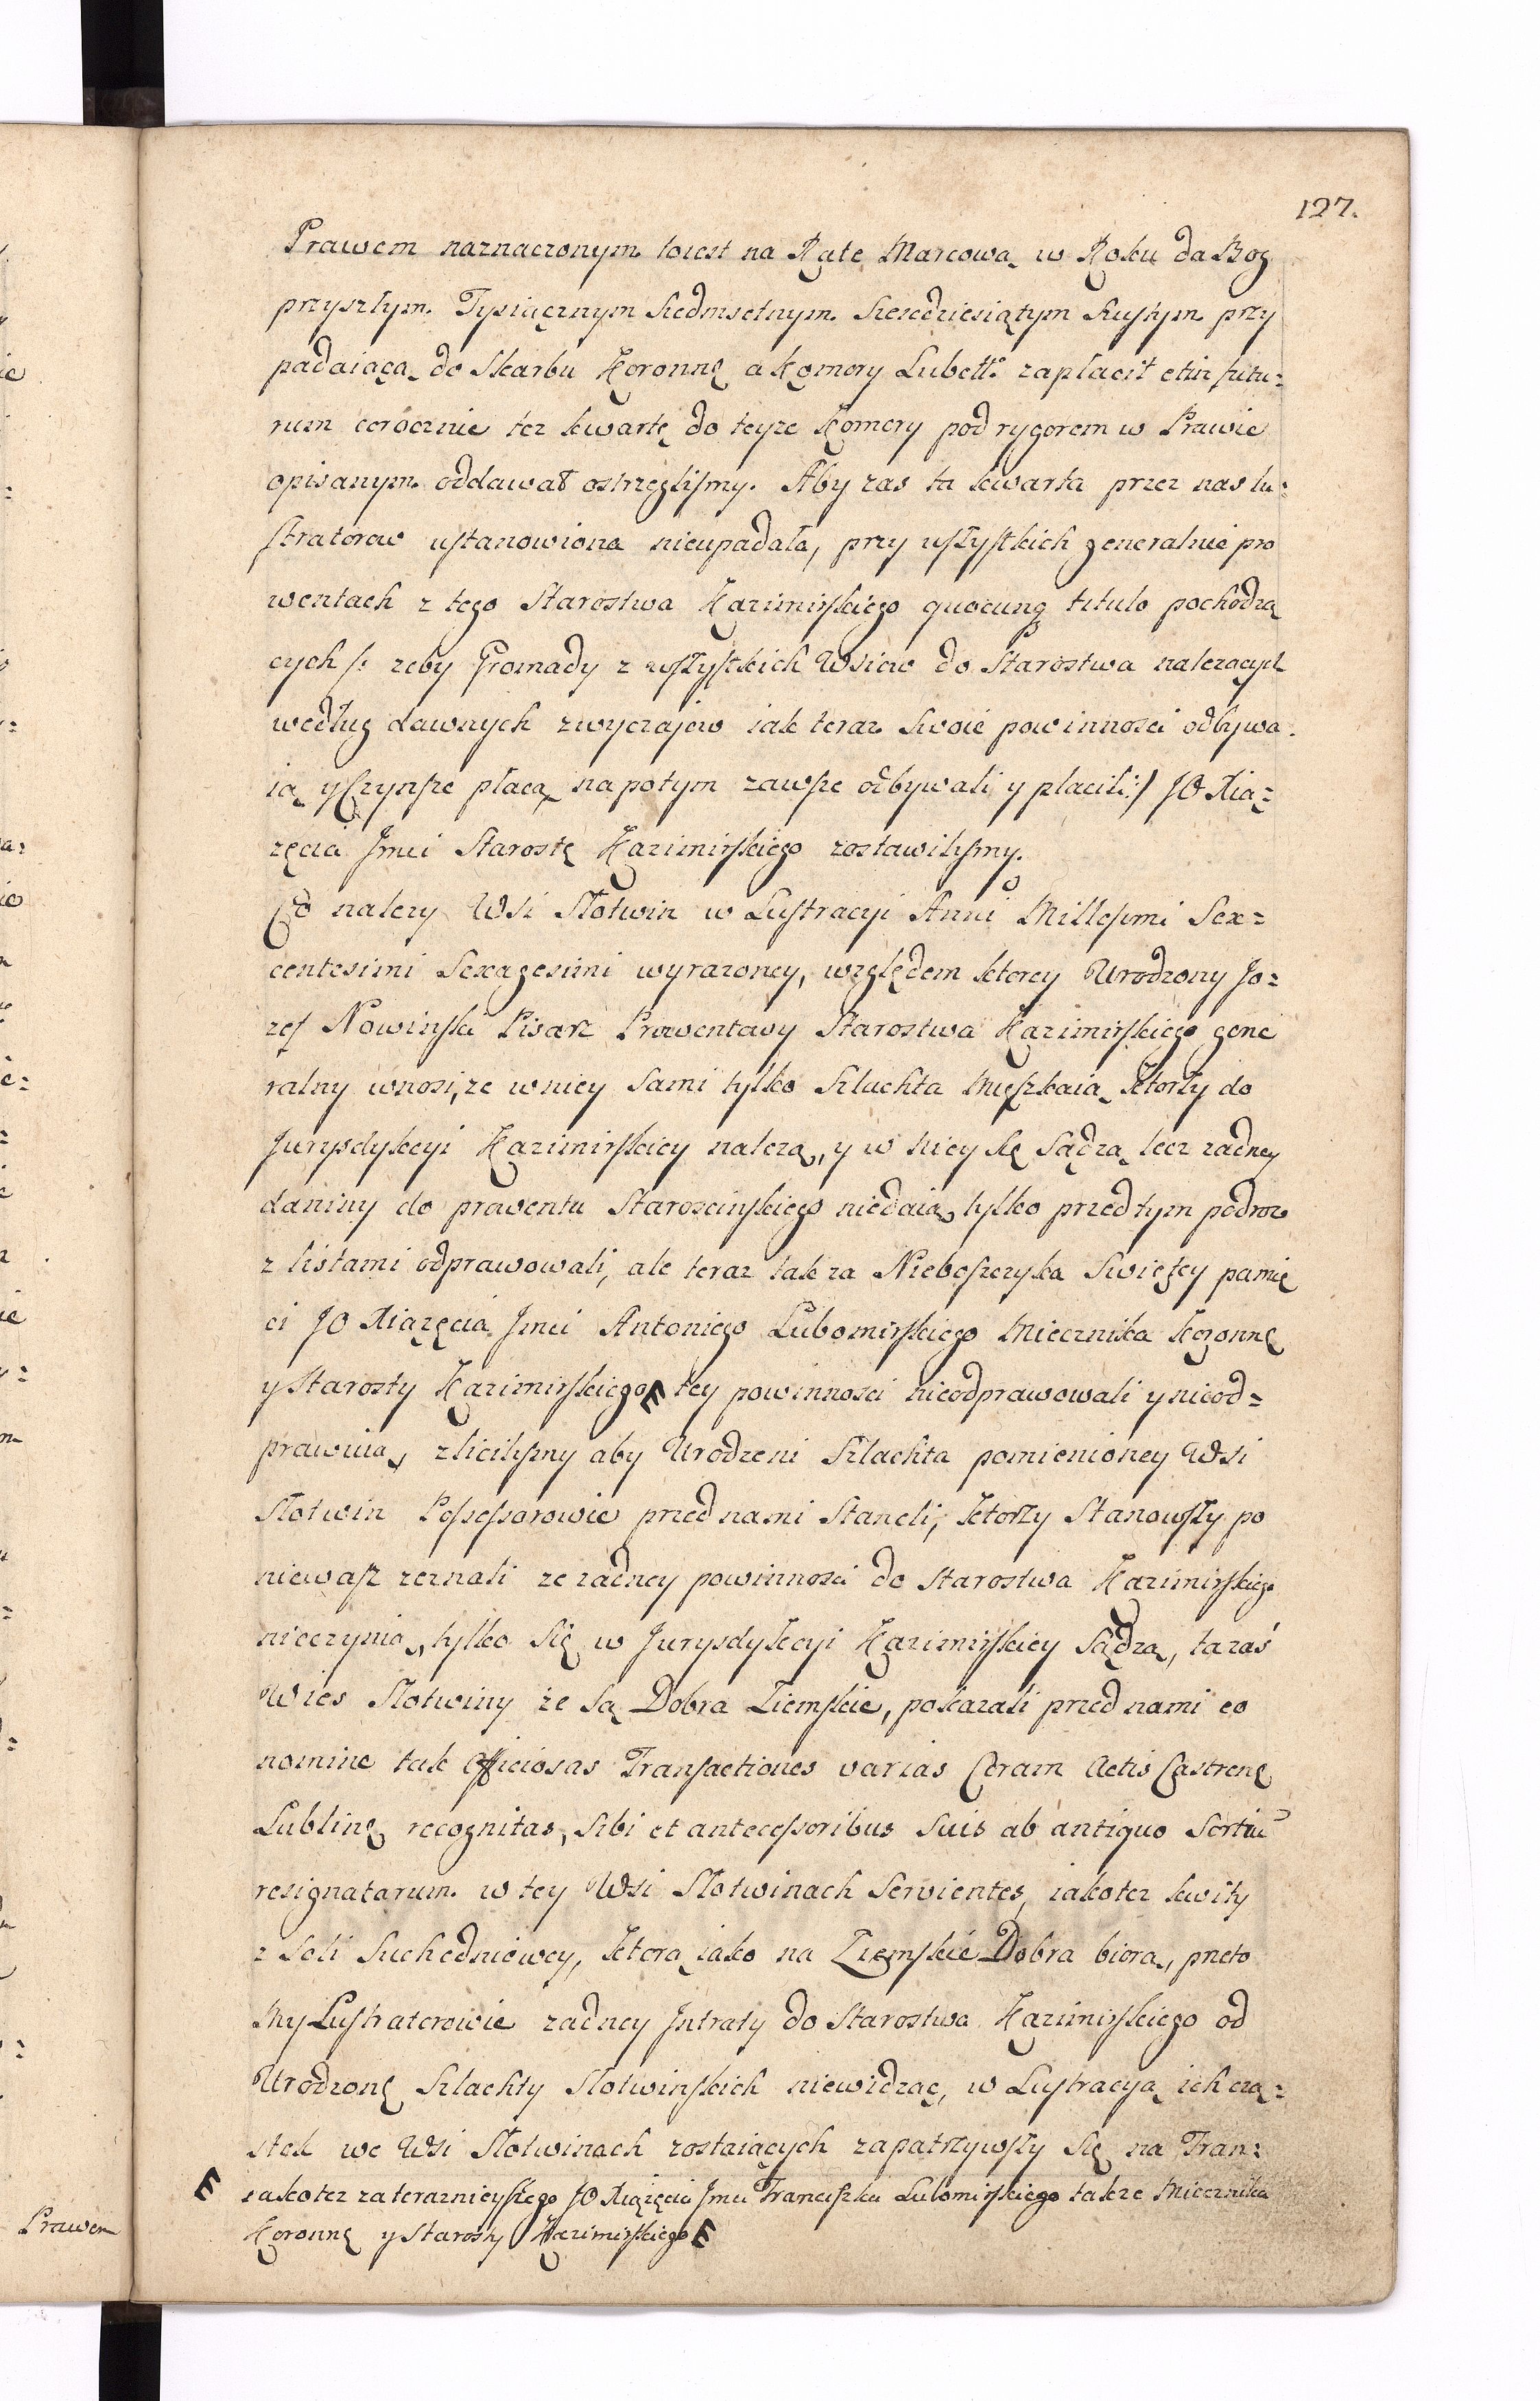 127.
Prawem naznaczonym toiest na Ratę Marcową w Roku da Bog
przyszłym Tysiącznym Siedmsetnym Szescdziesiątym Szustym przy
padaiącą do Skarbu Koronnę a Komory Lubell: zapłacił et in futu=
rum corocznie tez kwartę do teyze Komory pod rygorem w Prawie
opisanym oddawał ostrzeglismy. Aby zas ta kwarta przez nas lu=
stratorow ustanowiona nieupadała, przy wszystkich generalnie pro
wentach z tego Starostwa Kazimirskiego quocunq titulo pochodzą
cych /: zeby Gromady z wszystkich Wsiow do Starostwa nalezących
według dawnych zwyczajow iak teraz Swoie powinnosci odbywa
ią y Czynsze płacą na potym zawsze odbywali y płacili:/ JO Xią=
zęcia Jmci Starostę Kazimirskiego zostawilismy.
Co nalezy Wsi Słotwin w Lustracyi Anni Millesimi Sex=
centesimi Sexagesimi wyrazoney, względem ktorey Urodzony Jo=
zef Nowinski Pisarz Prowentowy Starostwa Kazimirskiego gene
ralny wnosi, ze w niey Sami tylko Szlachta Mięszkaią ktorzy do
Jurysdykcyi Kazimirskiey nalezą, y w niey się Sądzą lecz zadney
daniny do prowentu Staroscinskiego niedaią, tylko przedtym podroz
z listami odprawowali, ale teraz tak za Nieboszczyka Swiętey pamię
ci JO Xiązęcia Jmci Antoniego Lubomirskiego Miecznika Koronnę
y Starosty Kazimirskiego E tey powinnosci nieodprawowali y nieod=
prawuią, zlicilismy aby Urodzeni Szlachta pomienioney Wsi
Słotwin Possessorowie przed nami Staneli, ktorzy Stanowszy po
niewasz zeznali ze zadney powinnosci do Starostwa Kazimirskiego
nieczynią, tylko się w Jurysdykcyi Kazimirskiey Sądzą, ta zaś
Wies Słotwiny ze Są Dobra Ziemskie, pokazali przed nami eo
nomine tak officiosas Transactiones varias Coram Actis Castrenę
Lublinę recognitas, Sibi et antecessoribus Suis ab antiquo Sortiū
resignatarum w tey Wsi Słotwinach Servientes, iakotez kwity
z Soli Suchedniowey, ktorą iako na Ziemskie Dobra biorą, przeto
My Lustratorowie zadney Jntraty do Starostwa Kazimirskiego od
Urodzonę Szlachty Słotwinskich niewidząc, w Lustracyą ich czą=
stek we Wsi Słotwinach zostaiących zapatrzywszy Się na Tran=
E iakotez za teraznieyszego JO Xiązęcia Jmci Franciszka Lubomirskiego takze Miecznika
Koronnę y Starosty Kazimirskiego E
Prawem